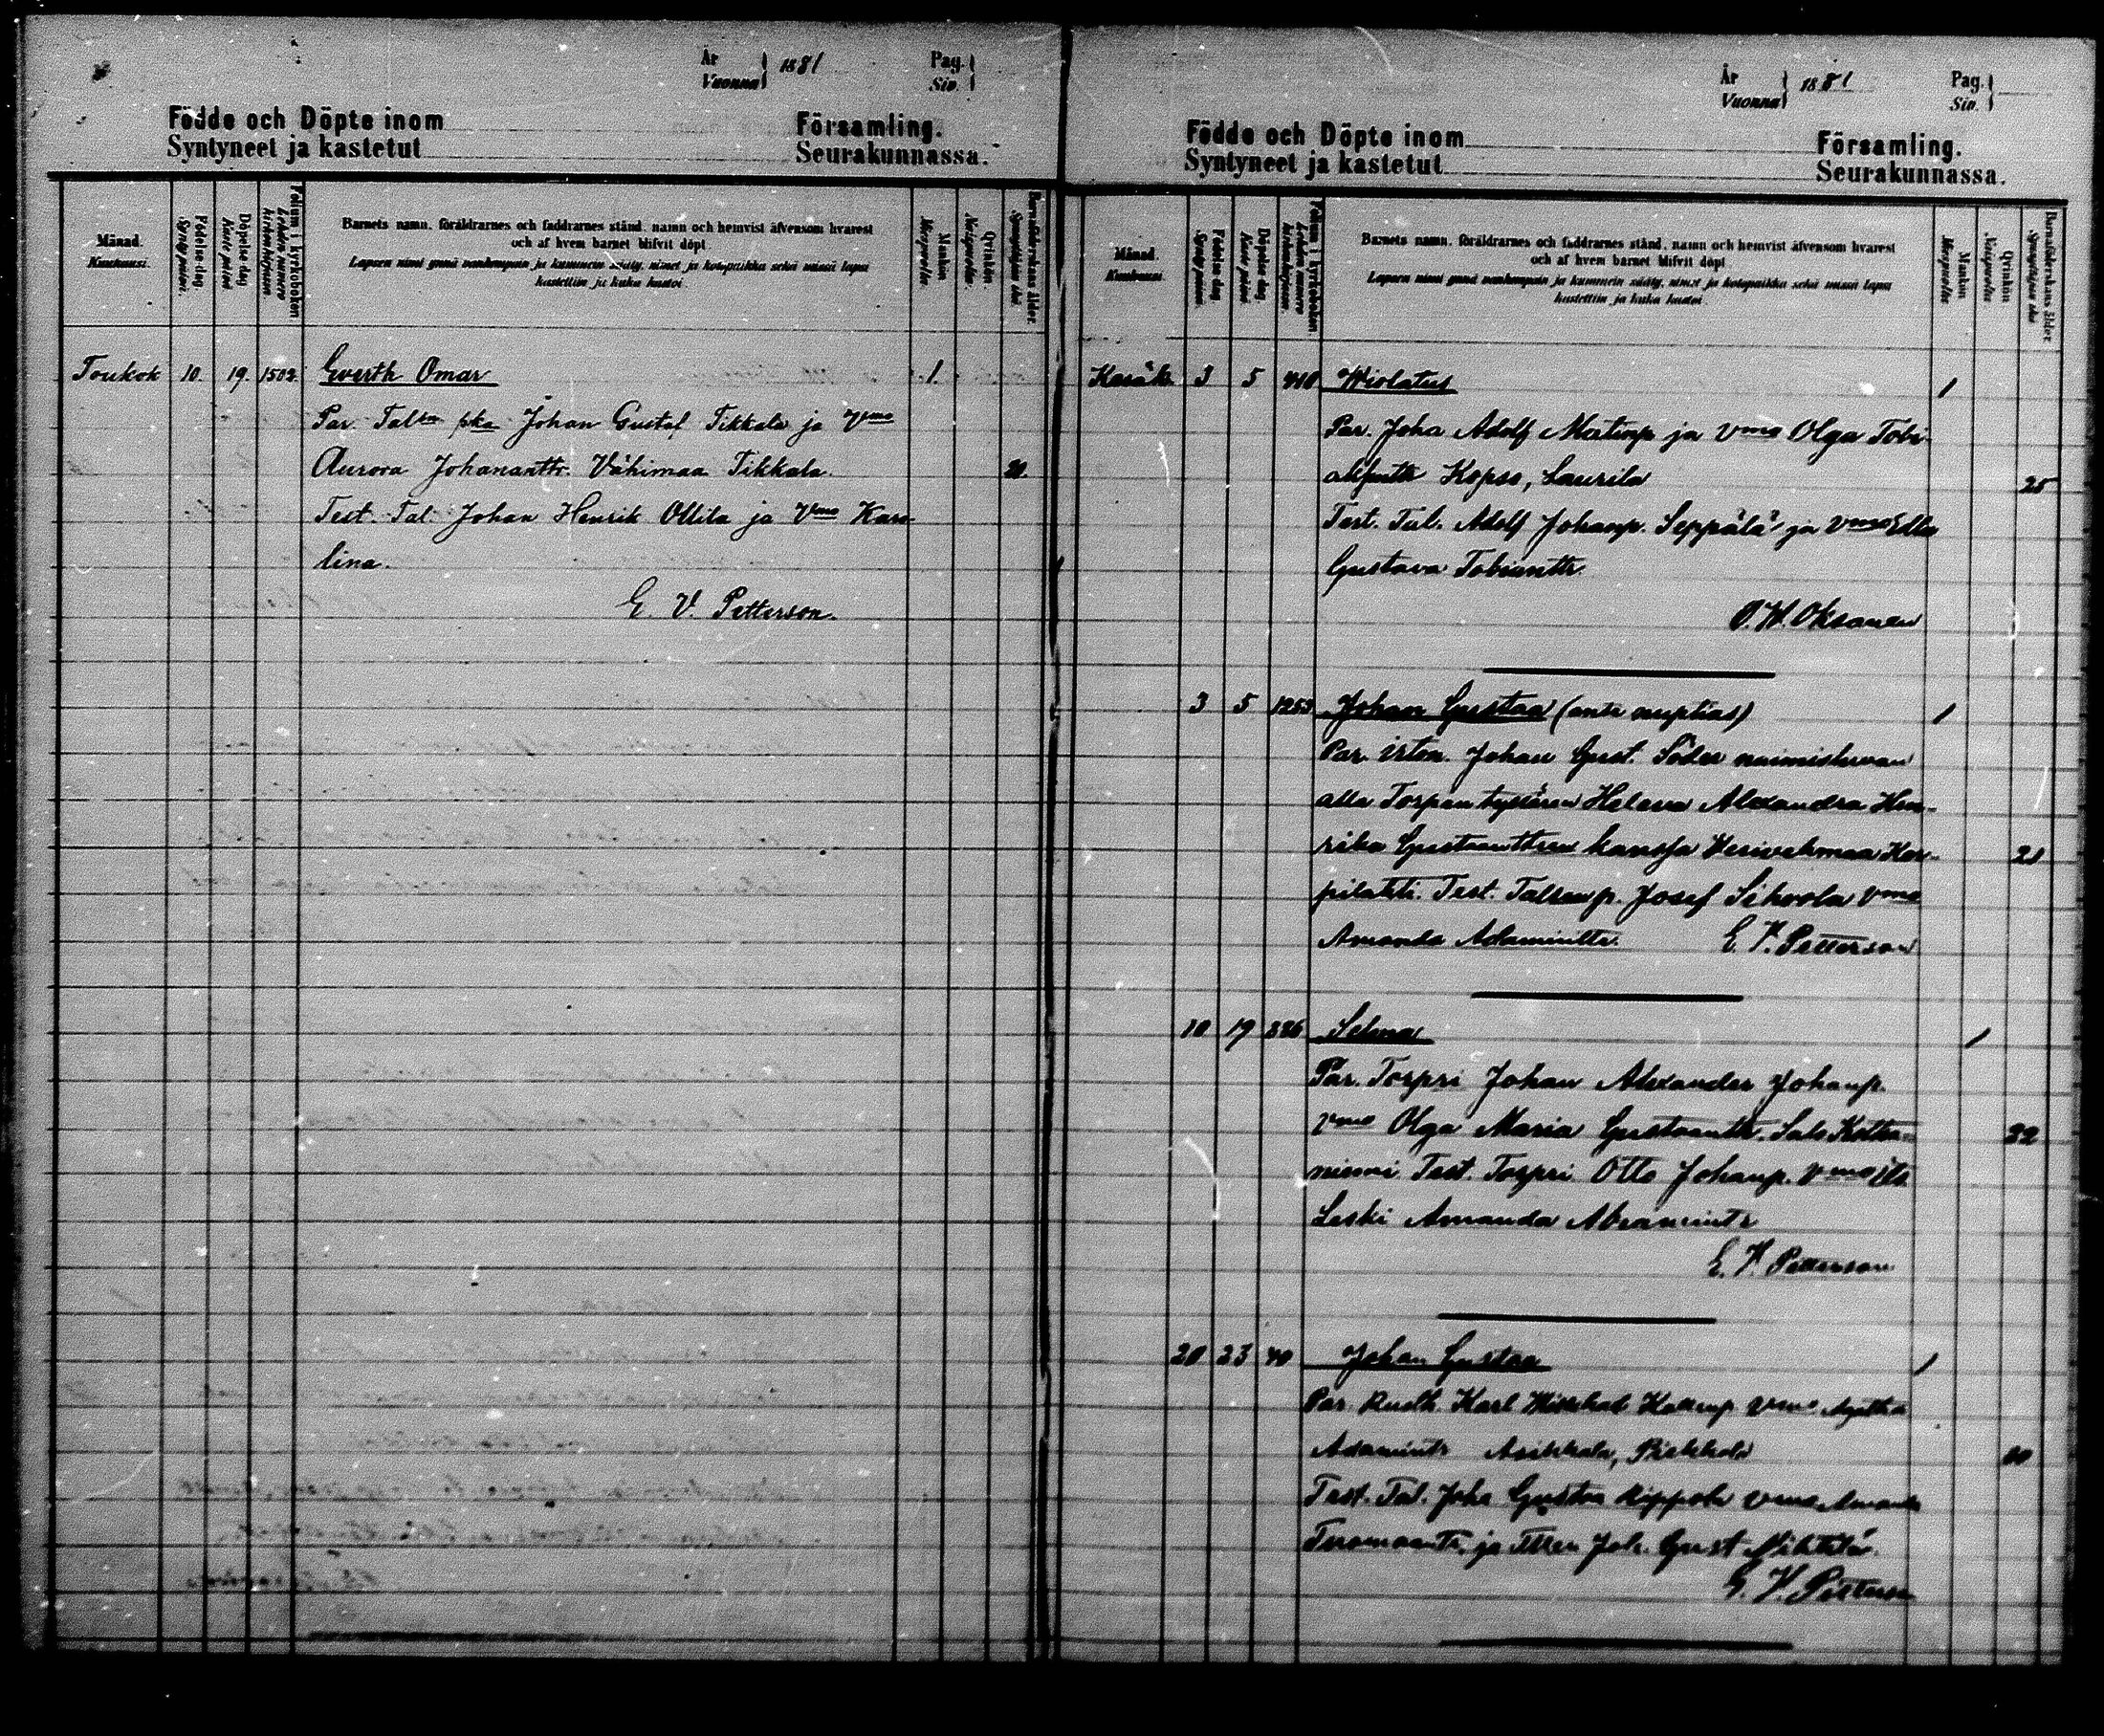 År
Vuonna 1881 Pag.
Siv.
Födde och Döpte inom Församling.
Syntyneet ja kastetut Seurakunnassa.
Månad.
Kuukausi.
Födelse dag
Syntymä päivä.
Döpelse dag
Kaste päivä
Folium i kyrkoboken.
Lehden numero
kirkonkirjassa
Barnets namn, föräldrarnes och faddrarnes stånd, namn och hemvist äfvensom hvarest
och af hvem barnet blifvit döpt
Lapsen nimi ynnä vanhempain ja kummein sääty, nimet ja kotopaikka sekä missä lapsi
kastettiin ja kuka kastoi.
Mankön
Miespuolia.
Qvinkön
Naispuolia.
Barnaföderskans ålder.
Synnyttäjän ikä
Toukok 10. 19. 1502 Ewerth Omar 1.
Par. Johan Gustaf Tikkala ja Vmo
Aurora Johananttr. Vähimaa Tikkala.
Test. Tal. Johan Henrik Ollila ja Vmo Karo
lina.
E. V. Petterson.
År
Vuonna 1881 Pag.
Siv.
Födde och Döpte inom Församling.
Syntyneet ja kastetut Seurakunnassa.
Månad.
Kuukausi.
Födelse dag
Syntymä päivä.
Döpelse dag.
Kaste päivä
Folium i kyrkoboken.
Lehden numero
kirkonkirjassa.
Barnets namn, föräldrarnes och faddrarnes stånd, namn och hemvist äfvensom hvarest
och af hvem barnet blifvit döpt
Lapsen nimi ynnä vanhempain ja kummein sääty, nimet ja kotopaikka sekä missä lapsi
kastettiin ja kuka kastoi.
Mankön
Miespuolia
Qvinkön
Naispuolia
Barnaföderskans ålder
Synnyttäjän ikä
Kesäk. 3 5 Wiolatus 1
Par. Joha Adolf Matinp ja Vmo Olga Tobi
Kopso, Laurila 25
Test. Tal. Adolf Johanp. Seppälä ja Vmo Edla
Gustava Tobianttr.
O. W. Oksanen
3 5 1253 Johan Gustaa (ante nuptias) 1
Par. Irton. Johan Gust. Söder naimisluvan
alla Torpan tyttären Helena Alexandra Hen-
rika Gustaanttren kanssa Vesivehmaa Kar-
pilahti. Test. Josef Sihvola Vmo
Amanda Adaminttr. E. V. Petterson
10 19 Selma 1
Par. Torpri Johan Alexander Johanp.
Vmo Olga Maria Gustaantt. Salo Kotka- 22
niemi Test. Torpri Otto Johanp. Vmo
Leski Amanda Abramintr
E. V. Petterson
20 23 40 Johan Gustaa 1
Par. Karl Vmo
Adamintr Asikkala, Pirkkola
Test. Tal. Joha Gustaa Vmo Amanda
Tuomantr. ja Joh. Gust.
E. V. Petterson